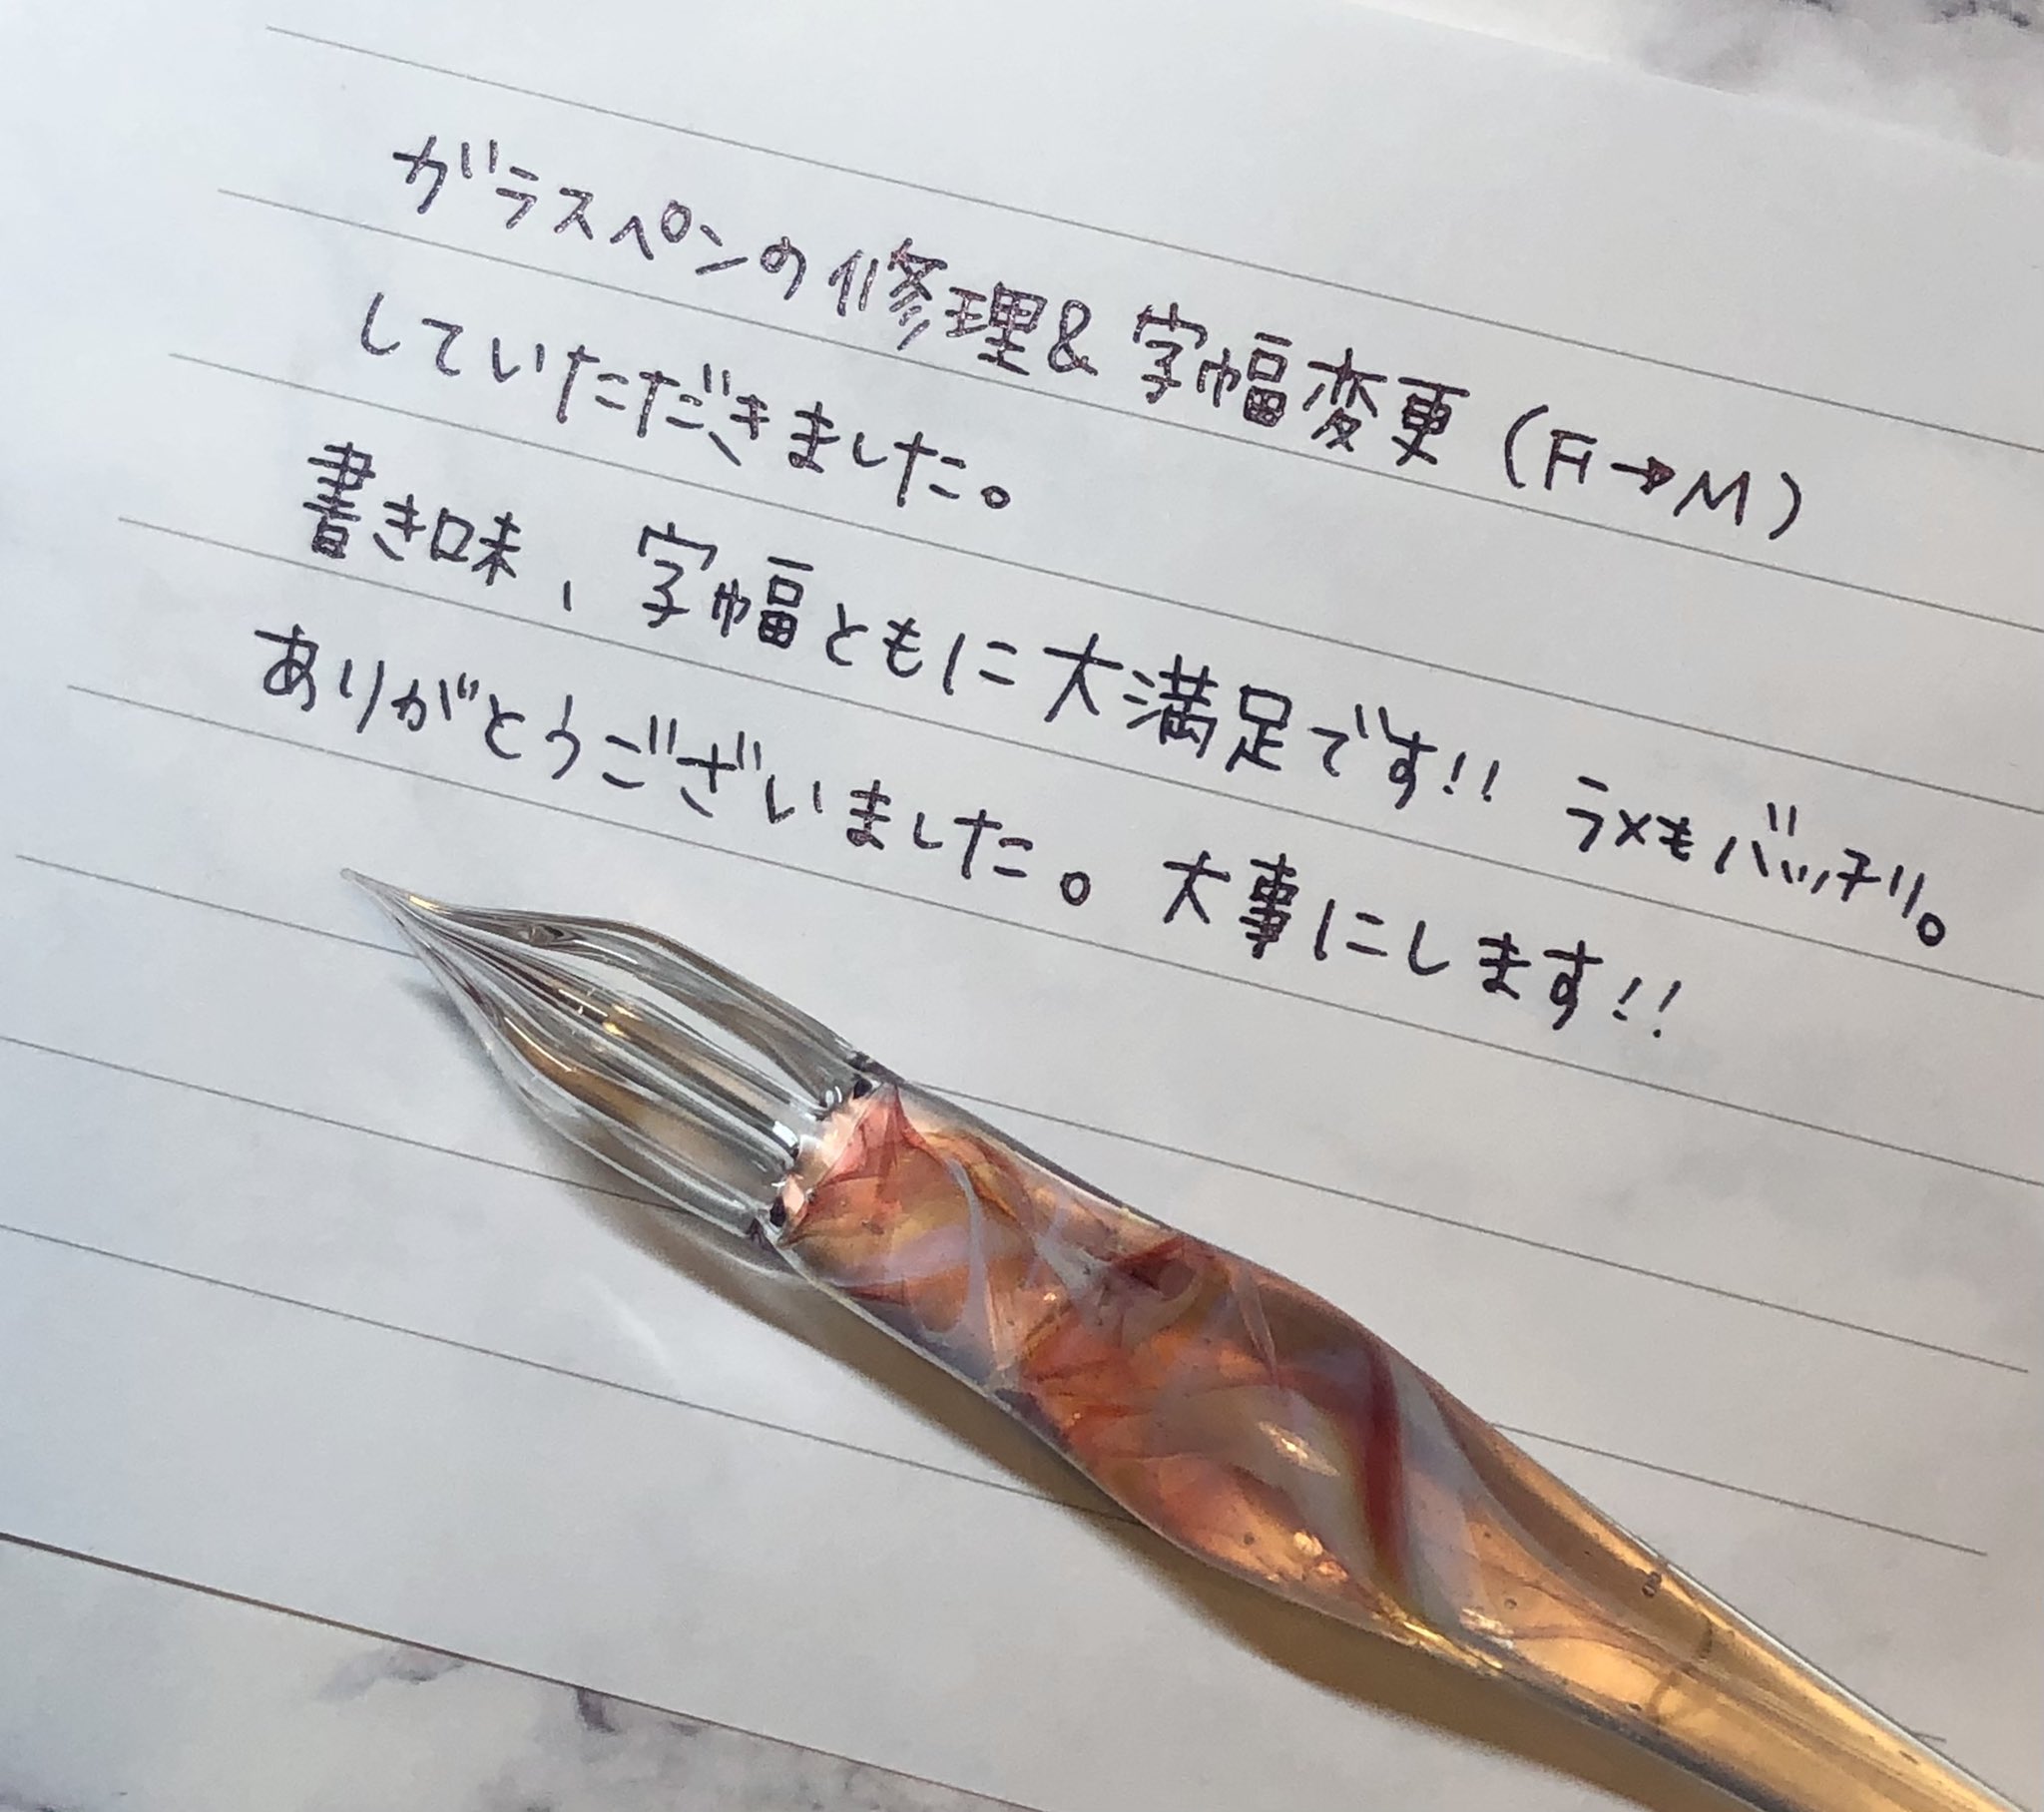 ガラスペンの修理&字幅変更(F→M)
していただきました。
書き味、字幅ともに大満足です!! ラメもバッチリ。
ありがとうございました。大事にします!!